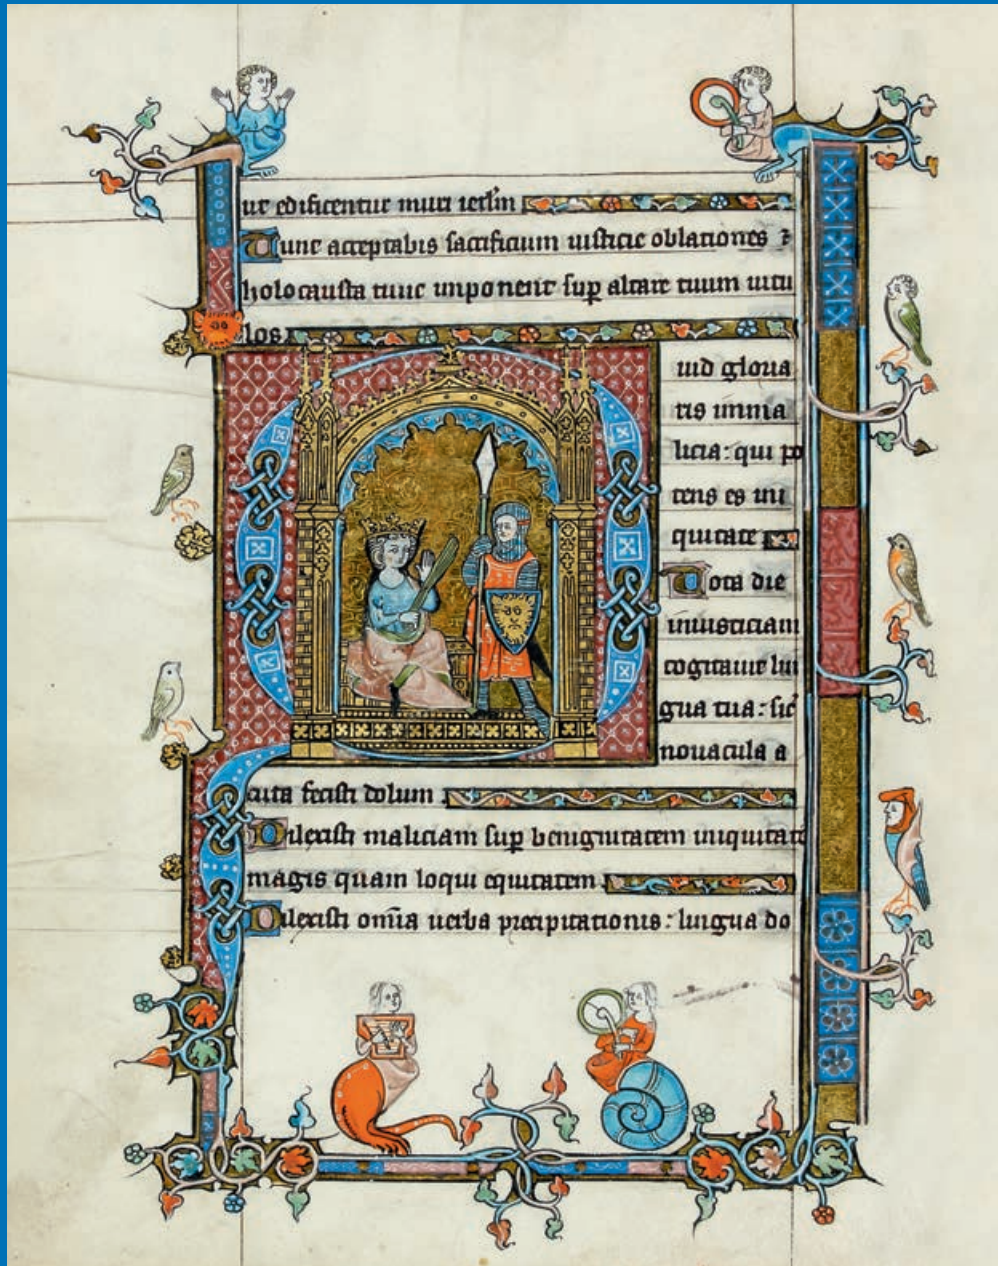 ut edificentur muri ierl̃m
Tunc acceptabis sacrificium iusticie oblationes ⁊
holocausta tunc imponent suꝑ altare tuum uitu
los.
Quid gloria
ris inma
licia: qui po
tens es ini
quitate
Tota die
iniusticiam
cogitauit lin
gua tua: sic̃
nouacula a
cuta fecisti dolum
Dilexisti maliciam suꝑ benignitatem iniquitatē
magis quam loqui equitatem.
Dilexisti om̃ia uerba precipitationis: lingua do